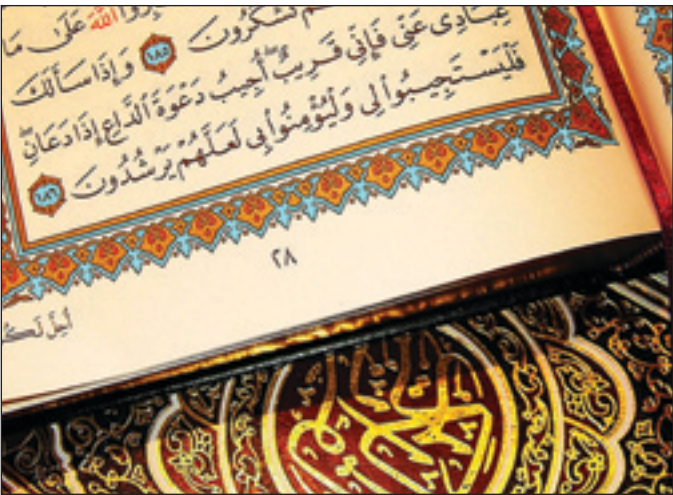 الله عَلَىٰ مَا
تَشْكُرُونَ ١٨٥ وَإِذَا سَأَلَكَ
عِبَادِى عَنِّى فَإِنِّى قَرِيبٌ أُجِيبُ دَعْوَةَ ٱلدَّاعِ إِذَا دَعَانِ
فَلْيَسْتَجِيبُوا۟ لِى وَلْيُؤْمِنُوا۟ بِى لَعَلَّهُمْ يَرْشُدُونَ ١٨٦
٢٨